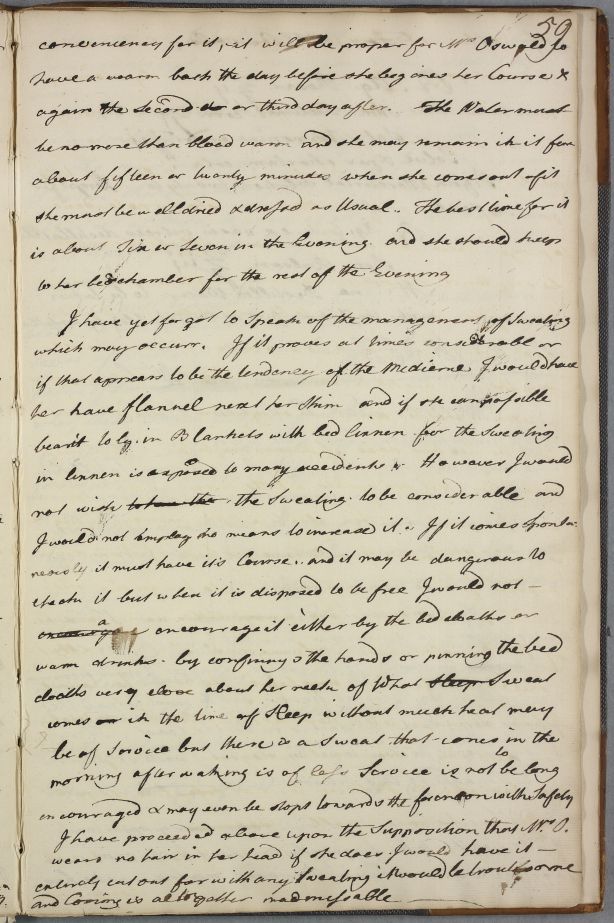 59
conveniency for it, it will be proper for Mrs Oswald to
have a warm bath the day before she begines her Course &
again the second or third day after. The Water must
be no more than blood warm and she may remain in it for
about fifteen or twenty minutes when she comes out of it
she must be well dried & dressed as Usual. The best time for it
is about Six or Seven in the Evening and she should keep
to her bed chamber for the rest of the Evening
I have yet forgot to Speak of the management of Sweating
which may occurr. If it proves at times considerable or
if that appears to be the tendency of the Medicine I would have
her have flannel next her Skin and if she can possible
bear it to ly in Blankets with bed linnen for the Sweating
in linnen is exposed to many accidents. However I would
not wish to have the the Sweating to be considerable and
I would not employ no means to increase it. If it comes Sponta
neously it must have its Course, and it may be dangerous to
check it but when it is disposed to be free I would not
encourage encourage it either by the bed cloaths or
warm drinks by confining the hands or pinning the bed
cloaths very close about her neck of What Sleep Sweat
comes on in the time of Sleep without much heat may
be of Service but there is a Sweat that comes in the
morning after waking is of less Service is not to be long
encouraged & may even be stopt towards the forenoon with Safety
I have proceeded above upon the Supposition that Mrs O.
wears no hair in her head if she does I would have it
entirely cut out for with any Sweating it would be troublesome
and Coming is altogether inadmissable